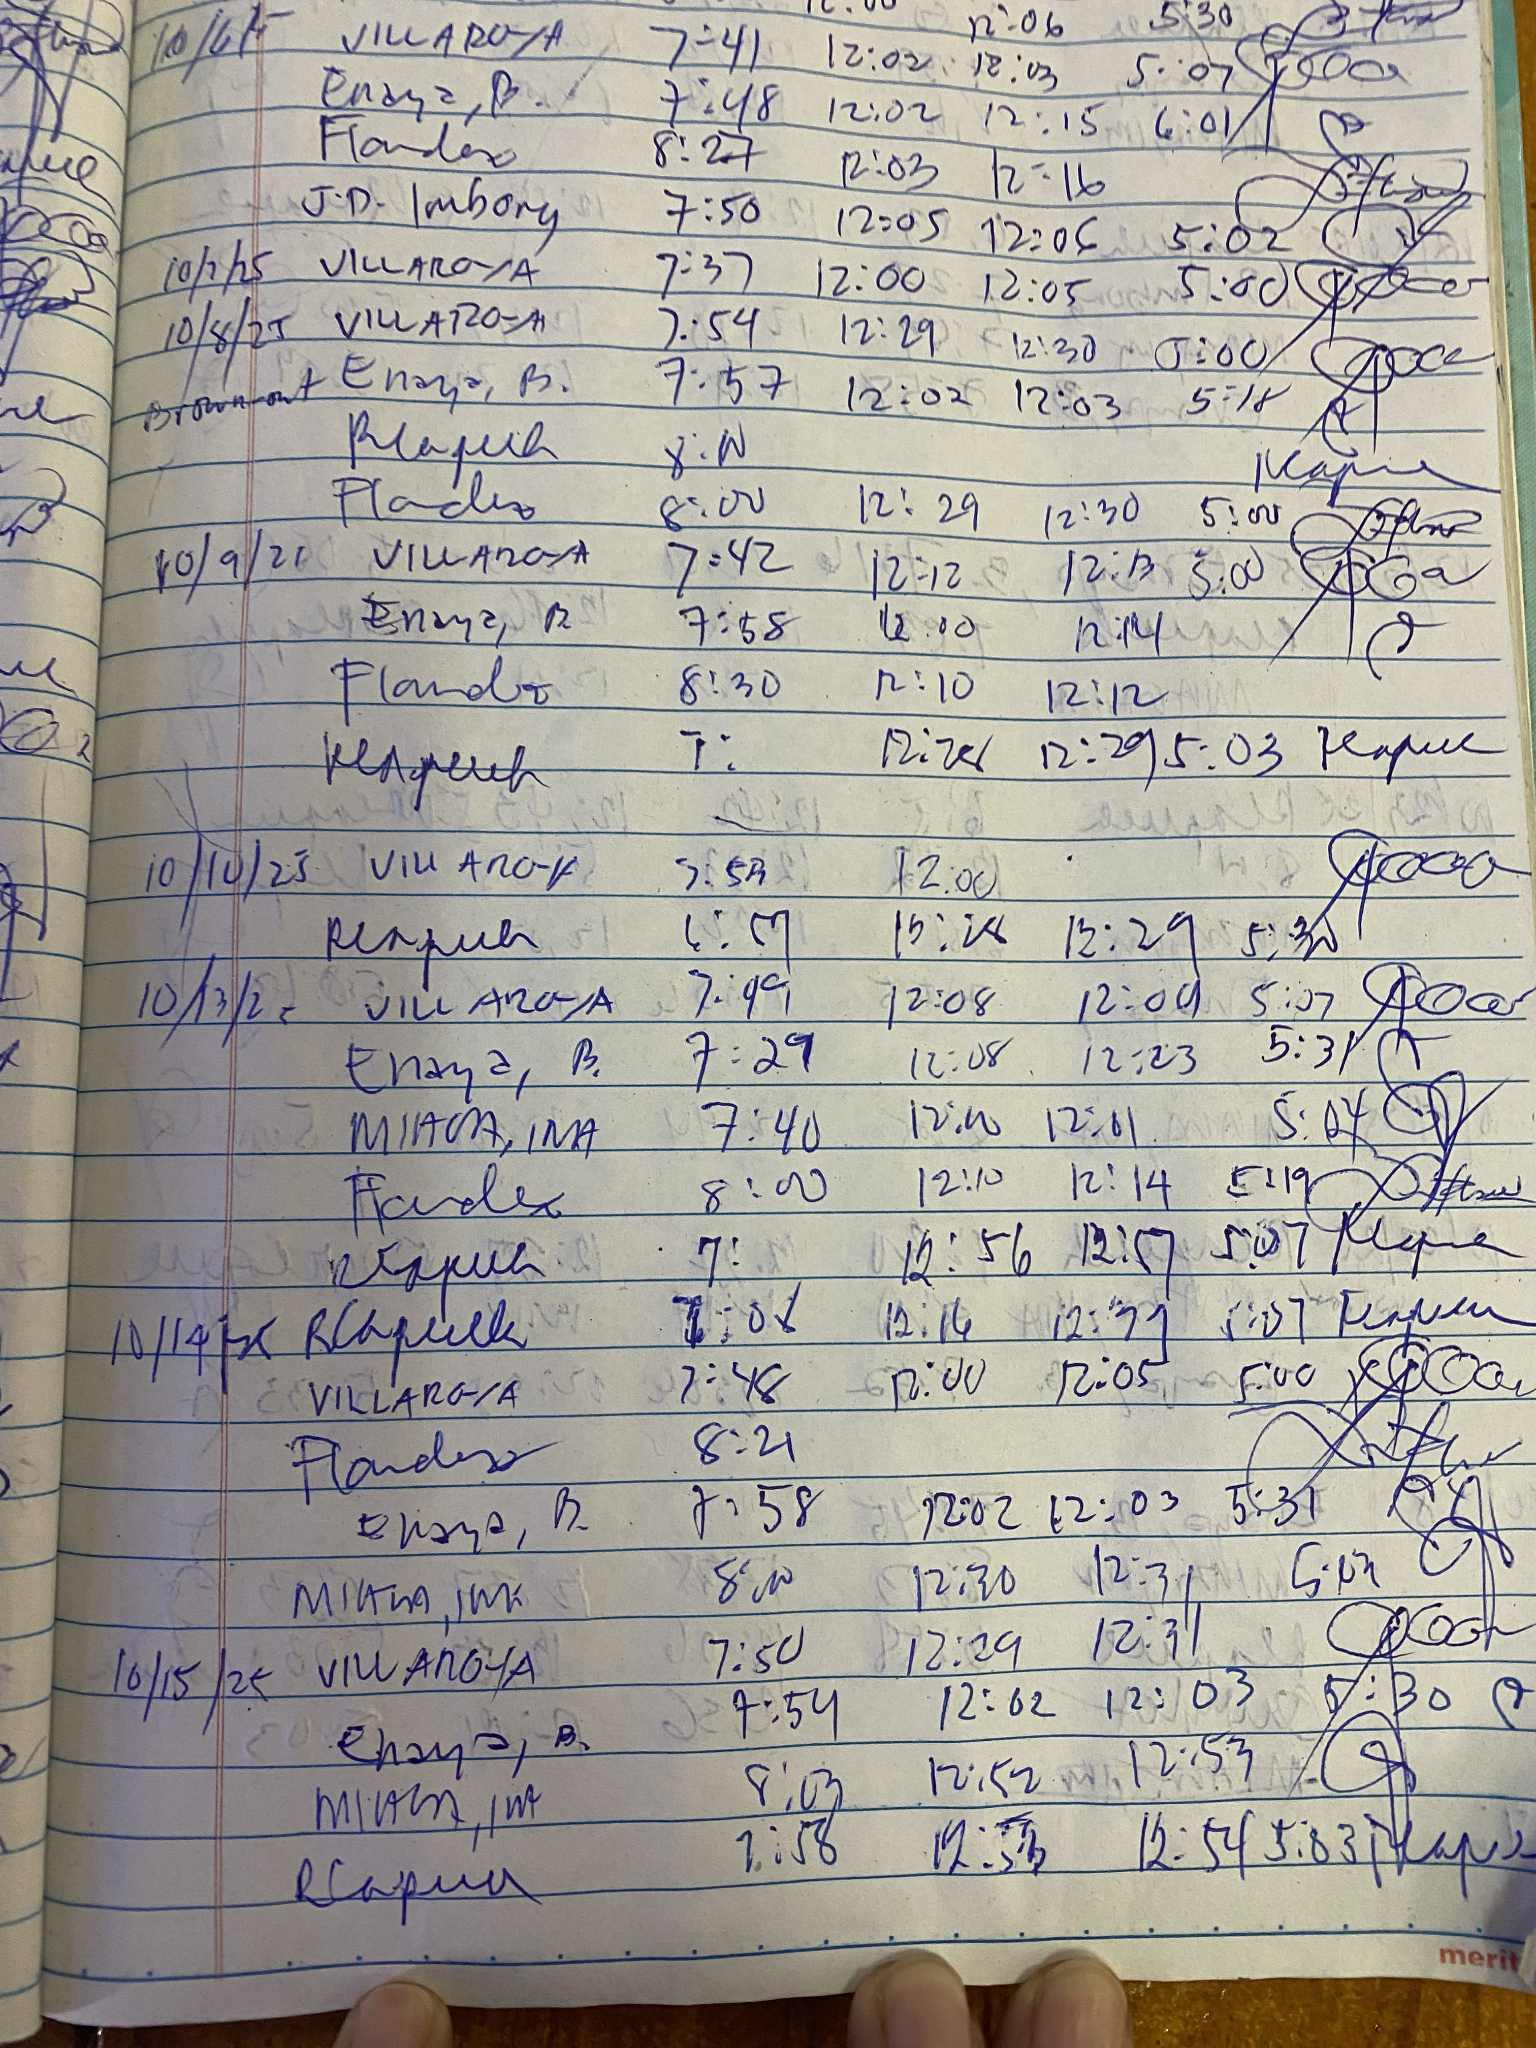 12:06 5:30
10/6/ VILLAROYA 7:41 12:02 12:03 5:07
Enaya, B. 7:48 12:02 12:15 6:01
Flandez 8:27 12:03 12:16
J.D. Imbong 7:50 12:05 12:06 5:02
10/7/25 VILLAROYA 7:37 12:00 12:05 5:00
10/8/25 VILLAROYA 7:54 12:29 12:30 5:00
Brown-out Enaya, B. 7:57 12:02 12:03 5:18
RCapua
Flandez 8:00 12:29 12:30 5:00
10/9/ VILLAROYA 7:42 12:12 12:13 5:00
Enaya, B 7:58 12:00 12:14
Flandez 8:30 12:10 12:12
7: 12:28 12:29 5:03
10/10/25 VILLAROYA 12:00
12:28 12:29 5:30
10/13/2 VILLAROYA 7:49 12:08 12:09 5:07
Enaya, B. 7:29 12:08 12:23 5:31
7:40 12:00 12:01 5:04
Flandez 8:00 12:10 12:14 5:19
7: 12:56 12:57 5:07
10/14 12:16 5:07
VILLAROYA 7:48 12:00 12:05 5:00
Flandez 8:21
Enaya, B. 7:58 12:02 12:03 5:31
8:00 12:30 12:31 5:03
10/15/25 VILLAROYA 7:50 12:29 12:31
Enaya, B. 7:54 12:02 12:03 5:30
8:03 12:52 12:53
7:58 12:53 12:54 5:03
merit